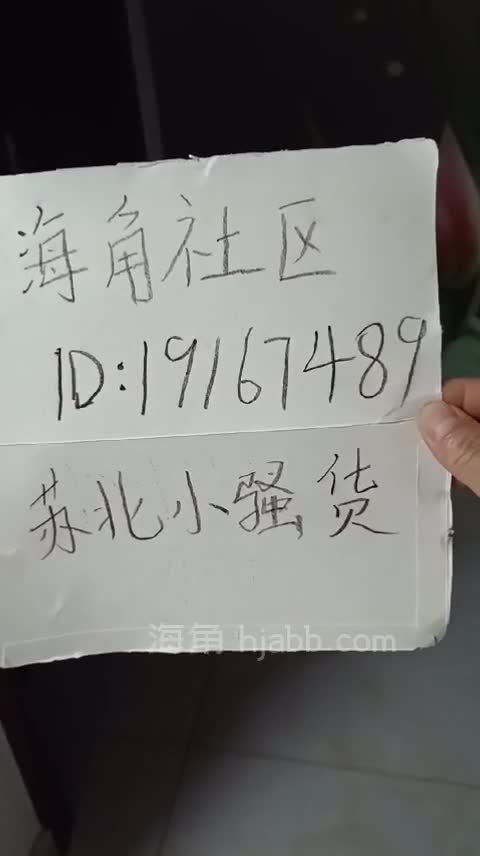 海角社区
ID:19167489
苏北小骚货
海角 hjabb.com